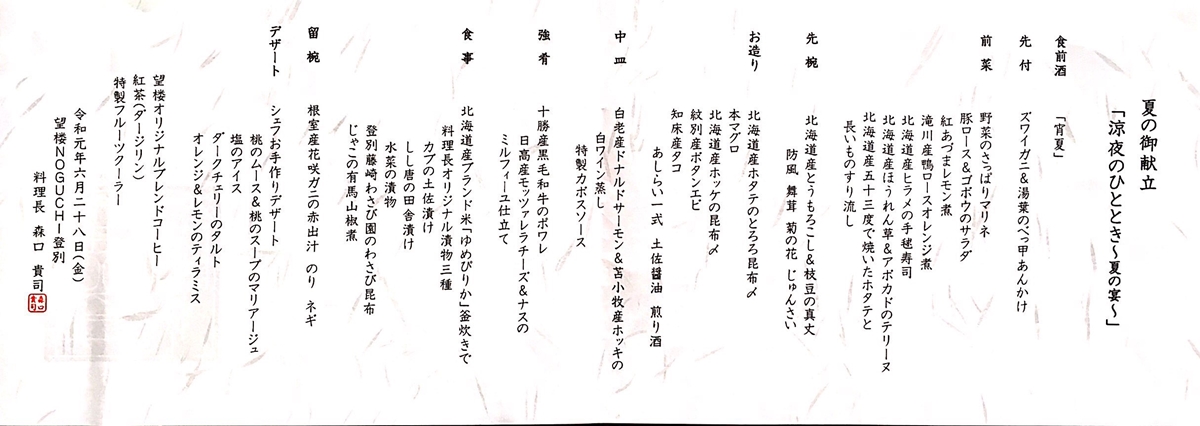 夏の御献立
「涼夜のひととき～夏の宴～」
食前酒 「宵夏」
先付 ズワイガニ＆湯葉のべっ甲あんかけ
前菜 野菜のさっぱりマリネ
豚ロース＆ゴボウのサラダ
紅あづまレモン煮
滝川産鴨ロースオレンジ煮
北海道産ヒラメの手毬寿司
北海道産ほうれん草＆アボカドのテリーヌ
北海道産五十三度で焼いたホタテと
長いものすり流し
先椀 北海道産とうもろこし＆枝豆の真丈
防風 舞茸 菊の花 じゅんさい
お造り 北海道産ホタテのとろろ昆布〆
本マグロ
北海道産ホッケの昆布〆
紋別産ボタンエビ
知床産タコ
あしらい一式 土佐醤油 煎り酒
中皿 白老産ドナルドサーモン＆苫小牧産ホッキの
白ワイン蒸し
特製カボスソース
強肴 十勝産黒毛和牛のポワレ
日高産モッツァレラチーズ＆ナスの
ミルフィーユ仕立て
食事 北海道産ブランド米「ゆめぴりか」釜炊きで
料理長オリジナル漬物三種
カブの土佐漬け
しし唐の田舎漬け
水菜の漬物
登別藤崎わさび園のわさび昆布
じゃこの有馬山椒煮
留椀 根室産花咲ガニの赤出汁 のり ネギ
デザート シェフお手作りデザート
桃のムース＆桃のスープのマリアージュ
塩のアイス
ダークチェリーのタルト
オレンジ＆レモンのティラミス
望楼オリジナルブレンドコーヒー
紅茶（ダージリン）
特製フルーツクーラー
令和元年六月二十八日（金）
望楼ＮＯＧＵＣＨＩ登別
料理長 森口 貴司
森口
貴司